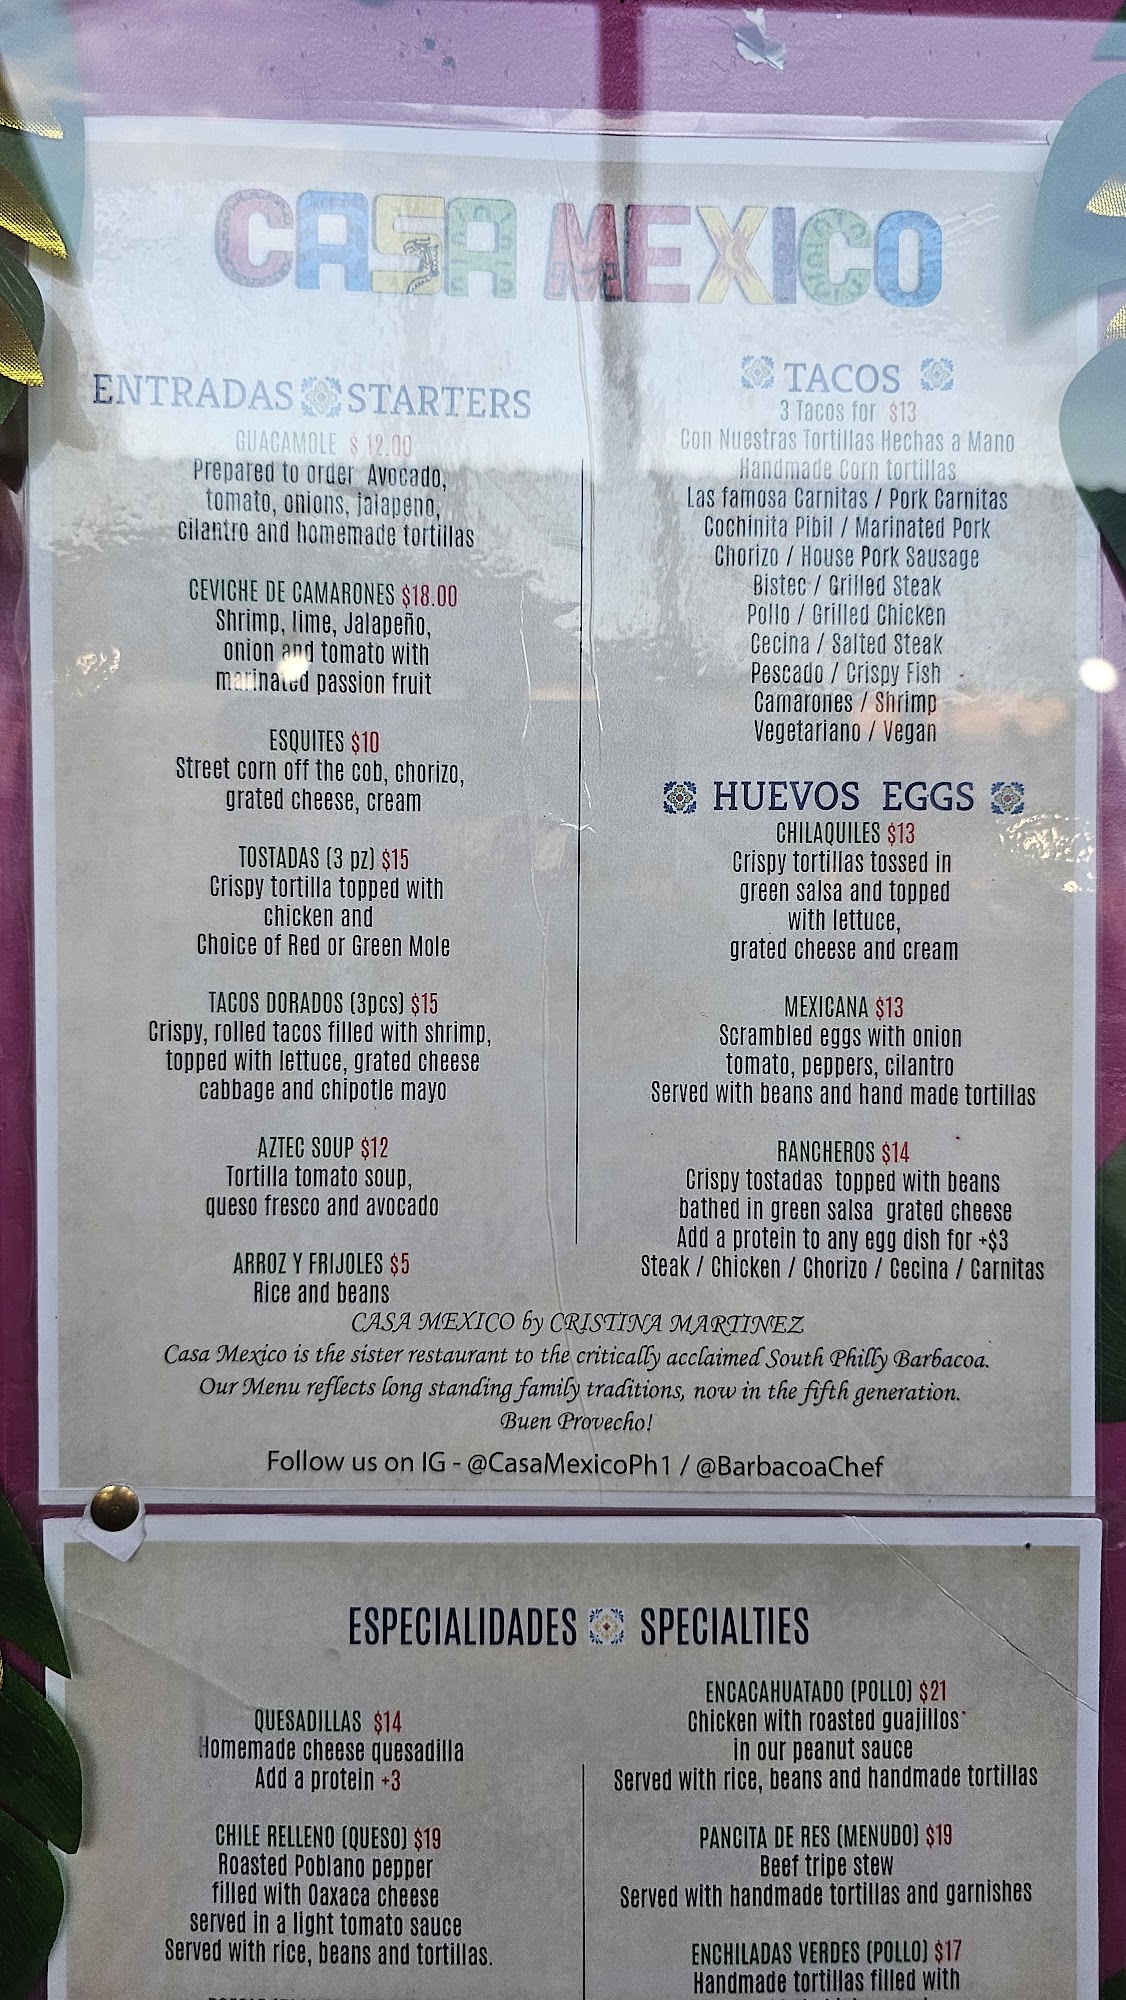 CASA MEXICO
ENTRADAS STARTERS
GUACAMOLE $ 12.00
Prepared to order Avocado,
tomato, onions, jalapeno,
cilantro and homemade tortillas
CEVICHE DE CAMARONES $18.00
Shrimp, lime, Jalapeño,
onion and tomato with
marinated passion fruit
ESQUITES $10
Street corn off the cob, chorizo,
grated cheese, cream
TOSTADAS (3 pz) $15
Crispy tortilla topped with
chicken and
Choice of Red or Green Mole
TACOS DORADOS (3pcs) $15
Crispy, rolled tacos filled with shrimp,
topped with lettuce, grated cheese
cabbage and chipotle mayo
AZTEC SOUP $12
Tortilla tomato soup,
queso fresco and avocado
ARROZ Y FRIJOLES $5
Rice and beans
TACOS
3 Tacos for $13
Con Nuestras Tortillas Hechas a Mano
Handmade Corn tortillas
Las famosa Carnitas / Pork Carnitas
Cochinita Pibil / Marinated Pork
Chorizo / House Pork Sausage
Bistec / Grilled Steak
Pollo / Grilled Chicken
Cecina / Salted Steak
Pescado / Crispy Fish
Camarones / Shrimp
Vegetariano / Vegan
HUEVOS EGGS
CHILAQUILES $13
Crispy tortillas tossed in
green salsa and topped
with lettuce,
grated cheese and cream
MEXICANA $13
Scrambled eggs with onion
tomato, peppers, cilantro
Served with beans and hand made tortillas
RANCHEROS $14
Crispy tostadas topped with beans
bathed in green salsa grated cheese
Add a protein to any egg dish for +$3
Steak / Chicken / Chorizo / Cecina / Carnitas
CASA MEXICO by CRISTINA MARTINEZ
Casa Mexico is the sister restaurant to the critically acclaimed South Philly Barbacoa.
Our Menu reflects long standing family traditions, now in the fifth generation.
Buen Provecho!
Follow us on IG - @CasaMexicoPh1 / @BarbacoaChef
ESPECIALIDADES SPECIALTIES
QUESADILLAS $14
Homemade cheese quesadilla
Add a protein +3
CHILE RELLENO (QUESO) $19
Roasted Poblano pepper
filled with Oaxaca cheese
served in a light tomato sauce
Served with rice, beans and tortillas.
ENCACAHUATADO (POLLO) $21
Chicken with roasted guajillos
in our peanut sauce
Served with rice, beans and handmade tortillas
PANCITA DE RES (MENUDO) $19
Beef tripe stew
Served with handmade tortillas and garnishes
ENCHILADAS VERDES (POLLO) $17
Handmade tortillas filled with